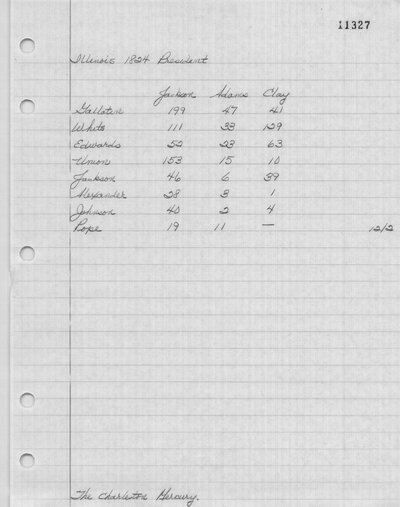 11327
Illinois 1824 President
Jackson Adams Clay
Gallaten 199 47 41
White 111 33 129
Edwards 52 23 63
Union 153 15 10
Jackson 46 6 39
Alexander 28 3 1
Johnson 40 2 4
Pope 19 11 — 12/2
The Charleston Mercury.